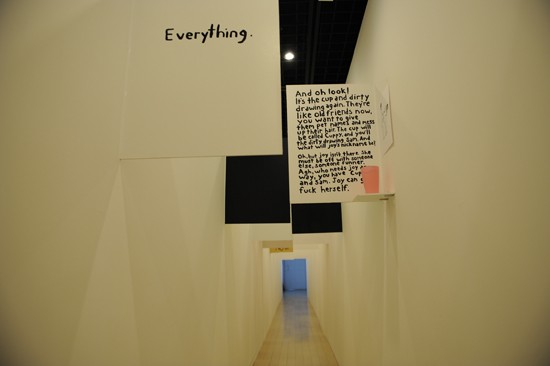 Everything.
And oh look!
It's the cup and dirty
drawing again. They're
like old friends now,
you want to give
them pet names and mess
up their hair. The cup will
be called Cuppy, and you'll
the dirty drawing Sam. And
what will joy's nickname be?
Oh, but joy isn't there. She
must be off with someone
else, someone funner.
Agh, who needs joy
way, you have Cup
and Sam. Joy can g
fuck herself.